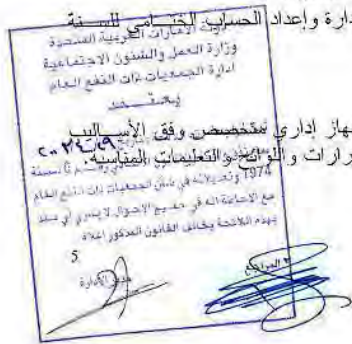 دارة وإعداد الحساب الختامي للسنة
دولة الامارات العربية المتحدة
وزارة العمل والشئون الاجتماعية
ادارة الجمعيات ذات النفع العام
يعتمد
هاز إداري متخصص وفق الأساليب
رارات واللوائح والتعليمات المقاسية.
1974 وتعديلاته في شأن الجمعيات ذات النفع العام
مع الاحاطة انه في جميع الاحوال لا يسري أي بند
بهذه اللائحة يخالف القانون المذكور اعلاه
5
المراجع
مدير الادارة